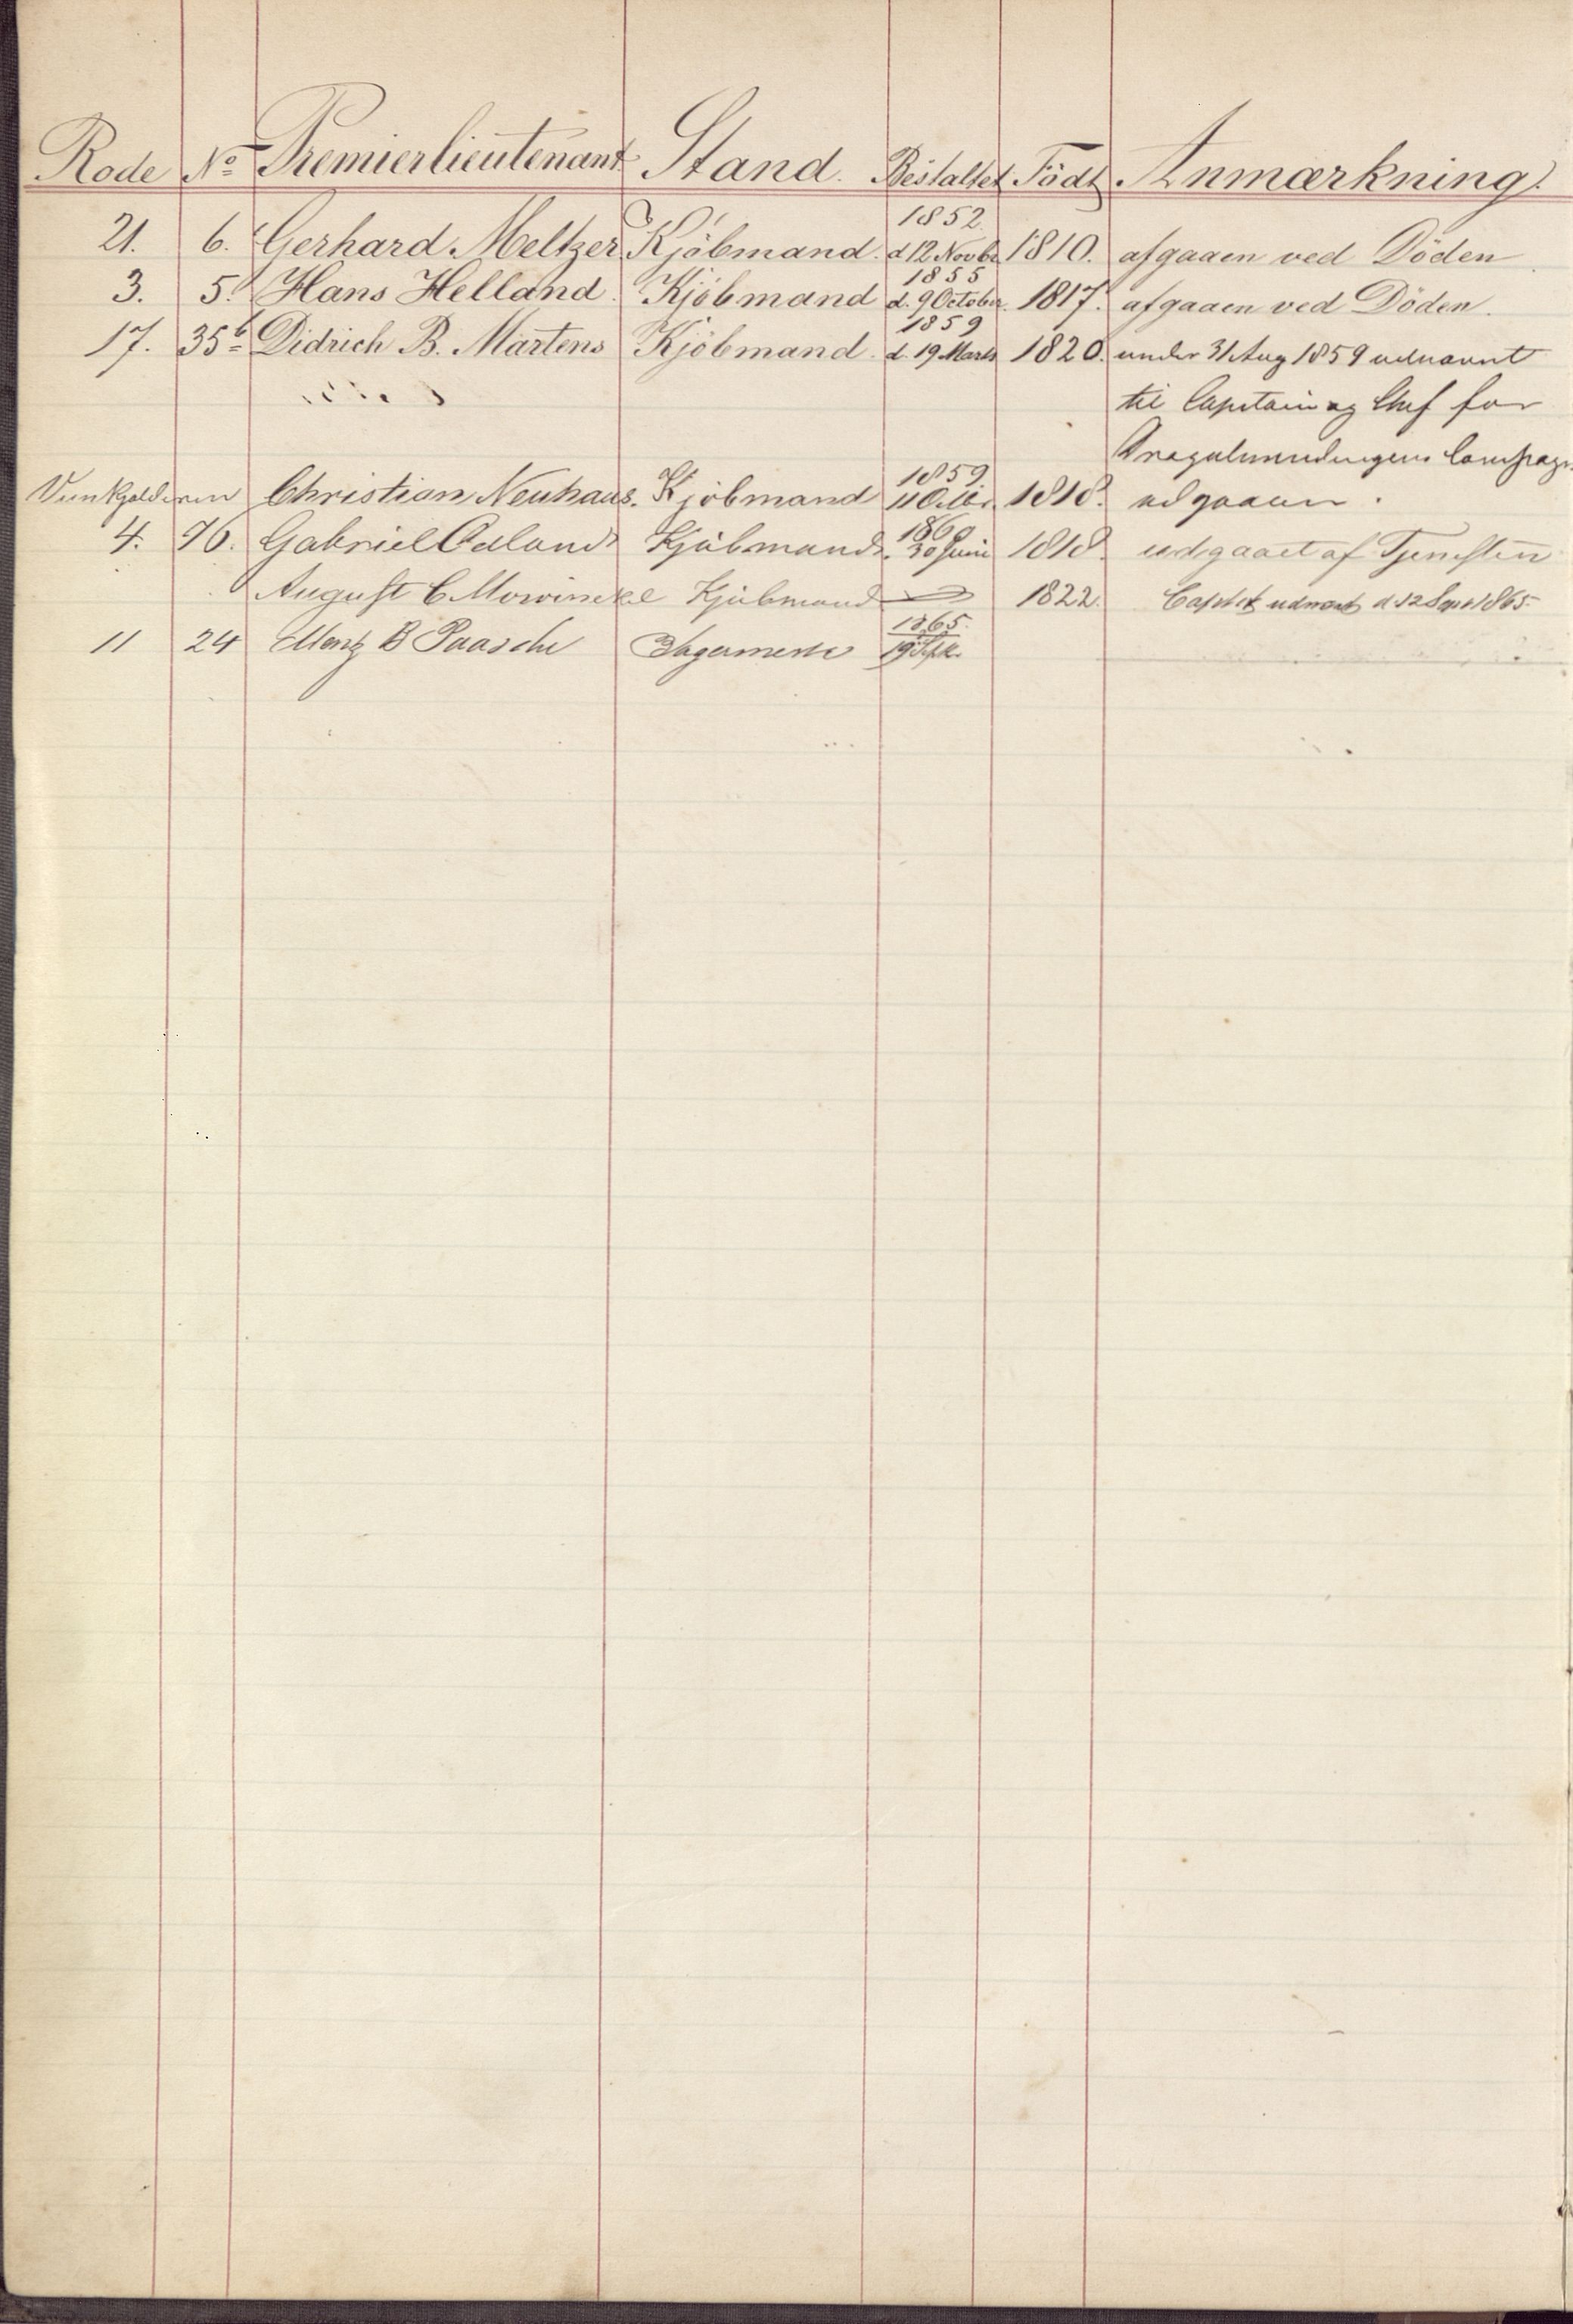 Rode No Premierlieutenant Stand. Bestaltet Födt Anmærkning.
1852.
21. 6. Gerhard Meltzer Kjöbmand. d 12 Novbr 1810. afgaaen ved Döden
1855
3. 5. Hans Helland. Kjöbmand d. 9 October. 1817. afgaaen ved Döden.
1859
17. 35b Didrich B. Martens Kjöbmand. d. 19 Marts 1820. under 31 Aug 1859 udnævnt
til Capitain og Chef for
Compagn.
1859
Christian Neuhaus. Kjöbmand 1818. udgaaen.
1860
4. 76. Gabriel Kjöbmand. 30 Juni 1818. udgaaet af Tjenesten
August C Mowinckel Kjöbmand 1822. udnævt d 12 Sept 1865.
1865.
11 24 B Paasche 19 Sept.